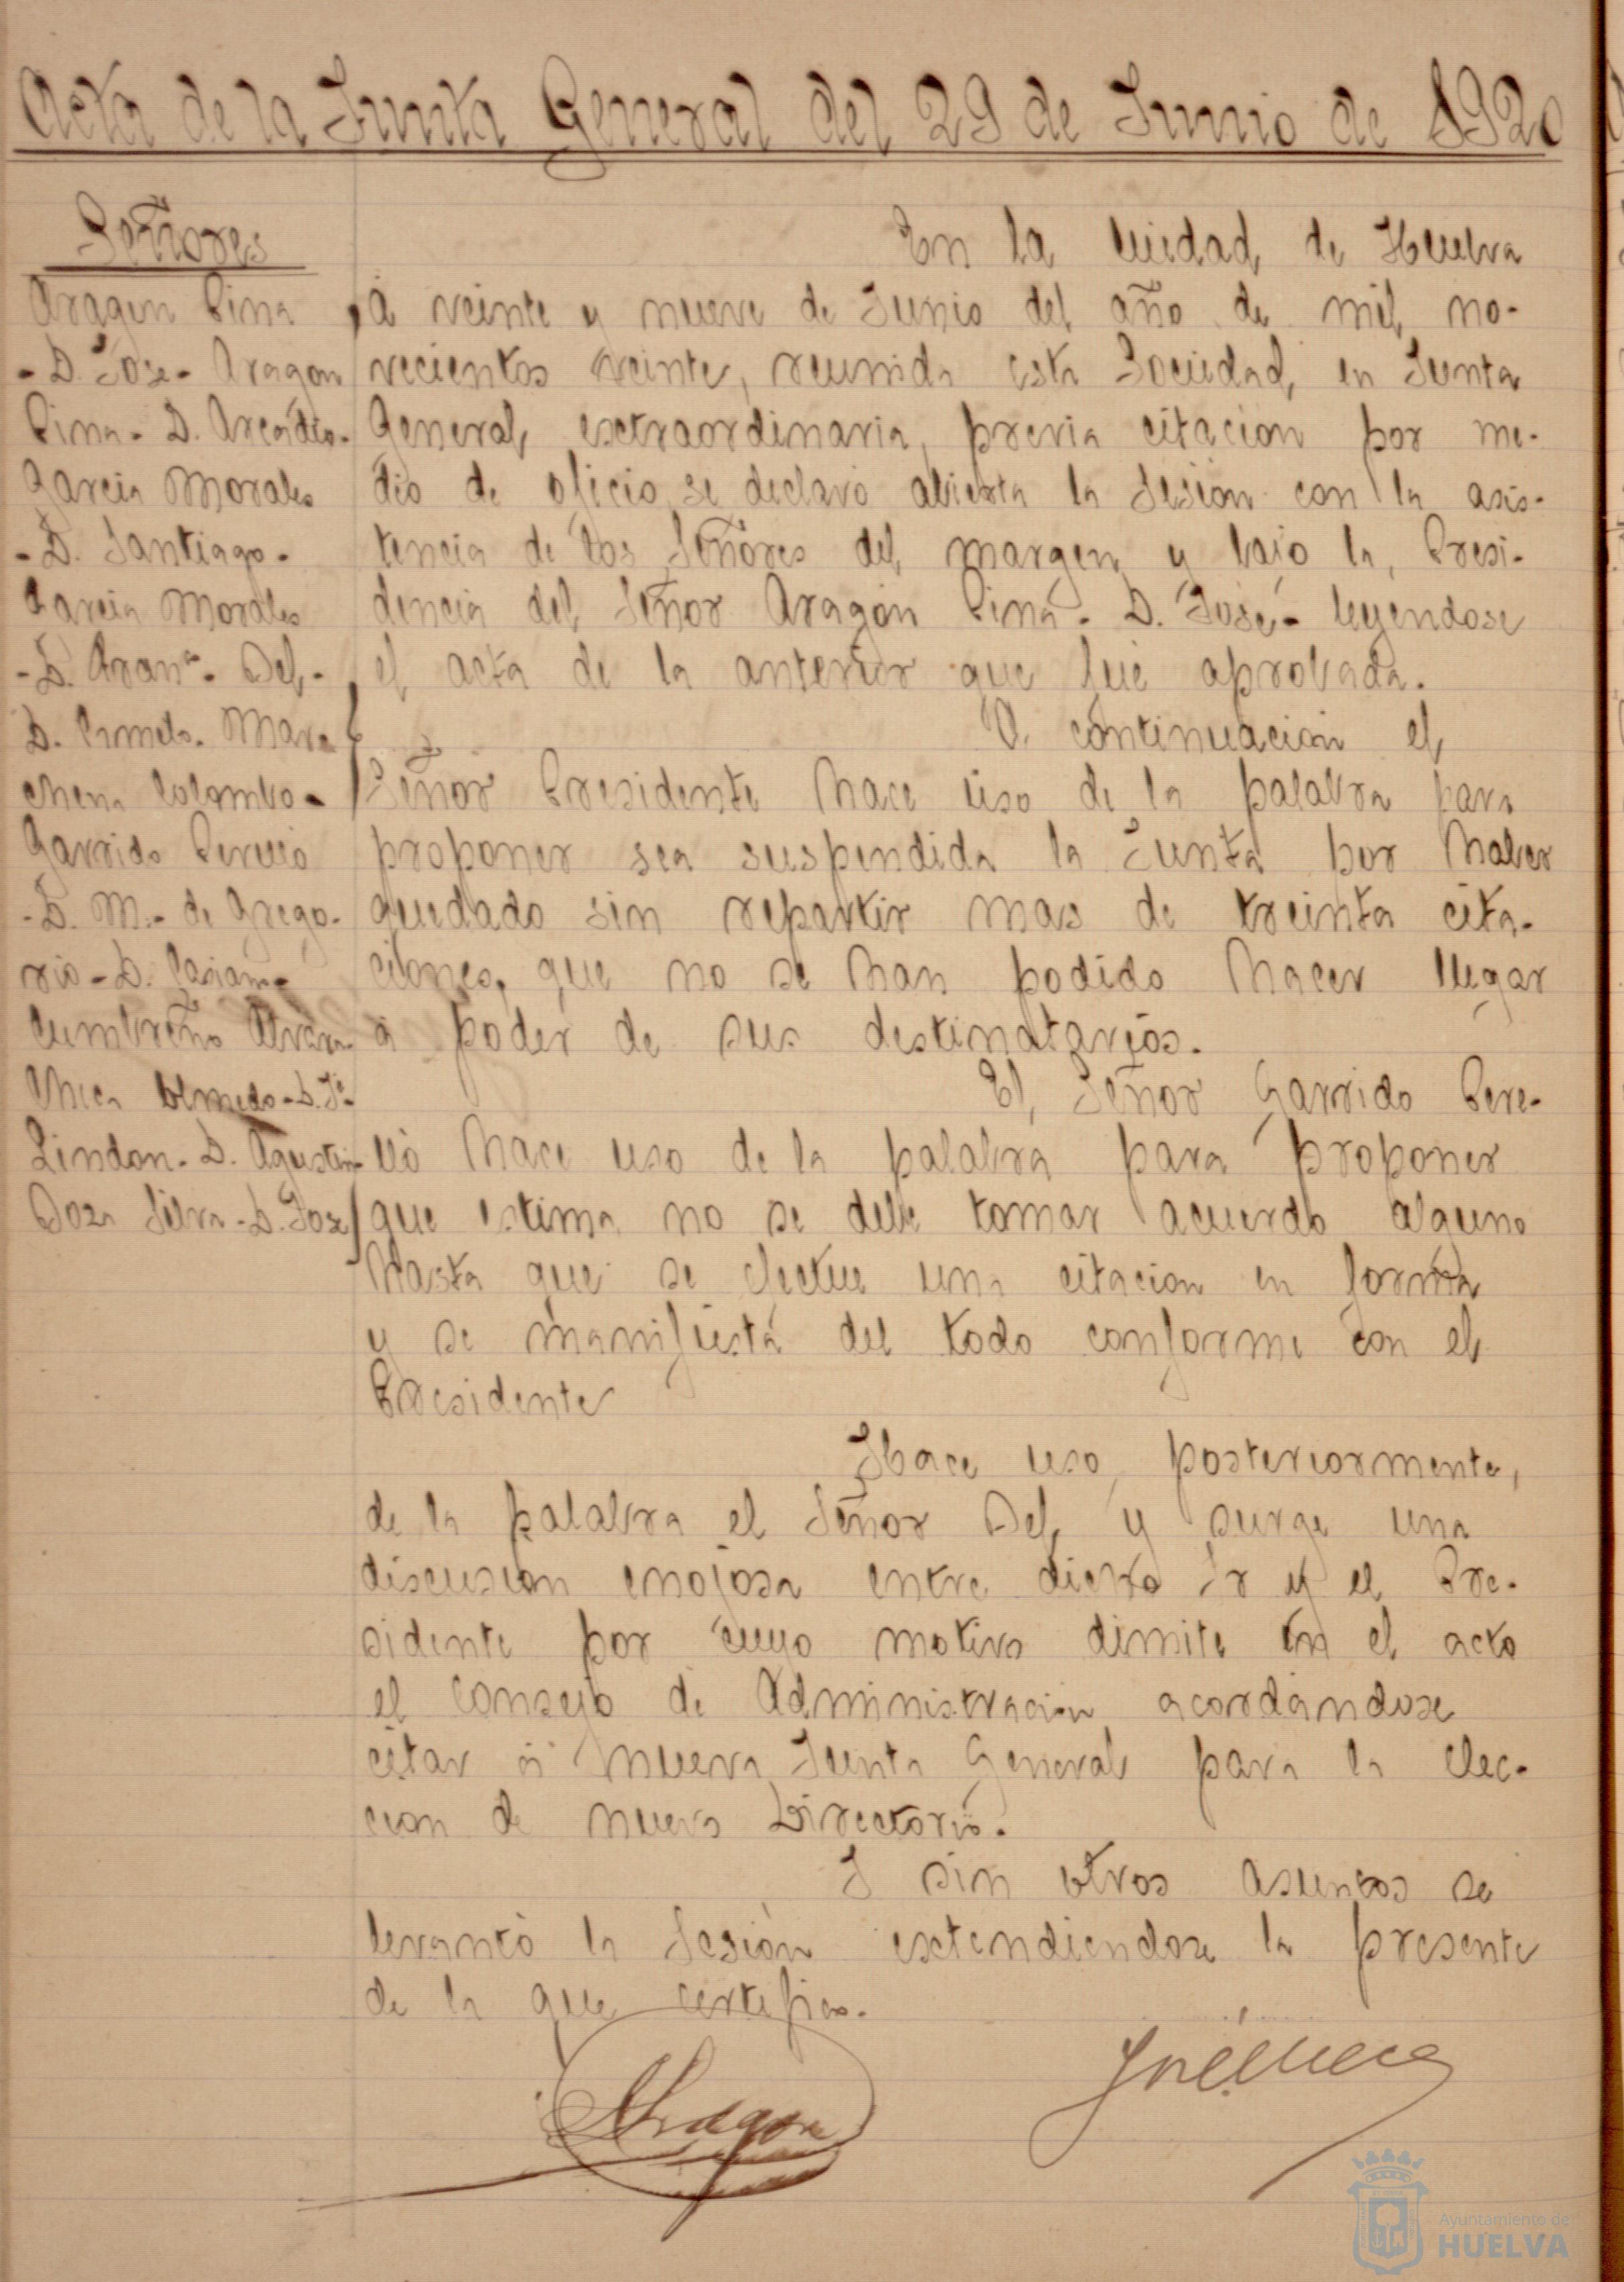 Acta de la Junta General del 29 de Junio de 1920
Señores
Aragon Pina
- D. José - Aragon
Pina - D. Arcadio -
Garcia Morales
- D. Santiago -
Garcia Morales
- D. Del -
D. Mar-
chena Colombo -
Garrido Perello
- D. M. - de Grego-
rio - D. Casiano
Cumbreño
Checa Olmedo - D. Jé
Lindon - D. Agustin
Silva - D. José
En la Ciudad de Huelva
á veinte y nueve de Junio del año de mil no-
vecientos veinte, reunida esta Sociedad, en Junta
General, exctraordinaria, previa citacion por me-
dio de oficio, se declaró abierta la Sesion con la asis-
tencia de los Señores del margen y bajo la Presi-
dencia del Señor Aragón Pina - D. José - leyendose
el acta de la anterior que fué aprobada.
A continuacion el
Señor Presidente hace uso de la palabra para
proponer sea suspendida la Junta por haber
quedado sin repartir mas de treinta cita-
ciones, que no se han podido hacer llegar
á poder de sus destinatarios.
El Señor Garrido Pere-
lló hace uso de la palabra para proponer
que estima no se debe tomar acuerdo alguno
hasta que se efectue una citacion en forma
y se manifiesta del todo conforme con el
Presidente
Hace uso, posteriormente,
de la palabra el Señor Del y surge una
discusion enojosa entre dicho Sr y el Pre-
sidente por cuyo motivo dimite en el acto
el Consejo de Administracion acordándose
citar á nueva Junta General para la elec-
cion de nuevo Directorio.
Y sin otros asuntos se
levantó la Sesión exctendiendose la presente
de la que certifico.
José Checa
Aragon
Ayuntamiento de
HUELVA